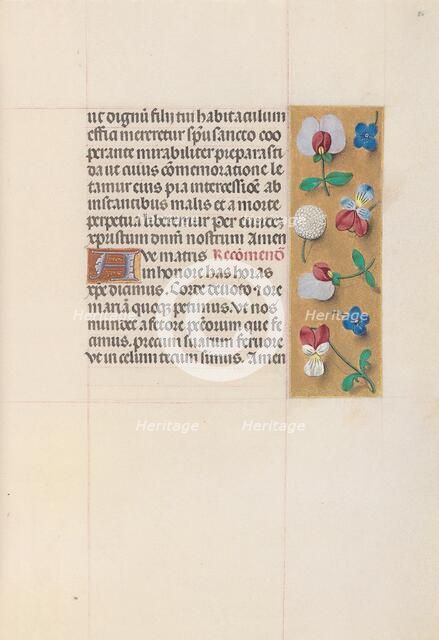 ut dignū filij tui habitaculum
effici mereretur spū sancto coo
perante mirabiliter preparasti
da ut cuius cōmemoratione le
tamur eius pia intercessiōe ab
instantibus malis et a morte
perpetua liberemur Per eundē
xpistum dnm̄ nostrum Amen
Ave matris Recōmendō
in honore has horas
xpē dicimus. Corde devoto
mariā quoqz petimus. Ut nos
mundet a fetore pctōrum que fe
cimus. precum suarum fervore
Ut in celum tecum simus. Amen
Heritage
Heritage
Heritage
Heritage
Heritage
Heritage